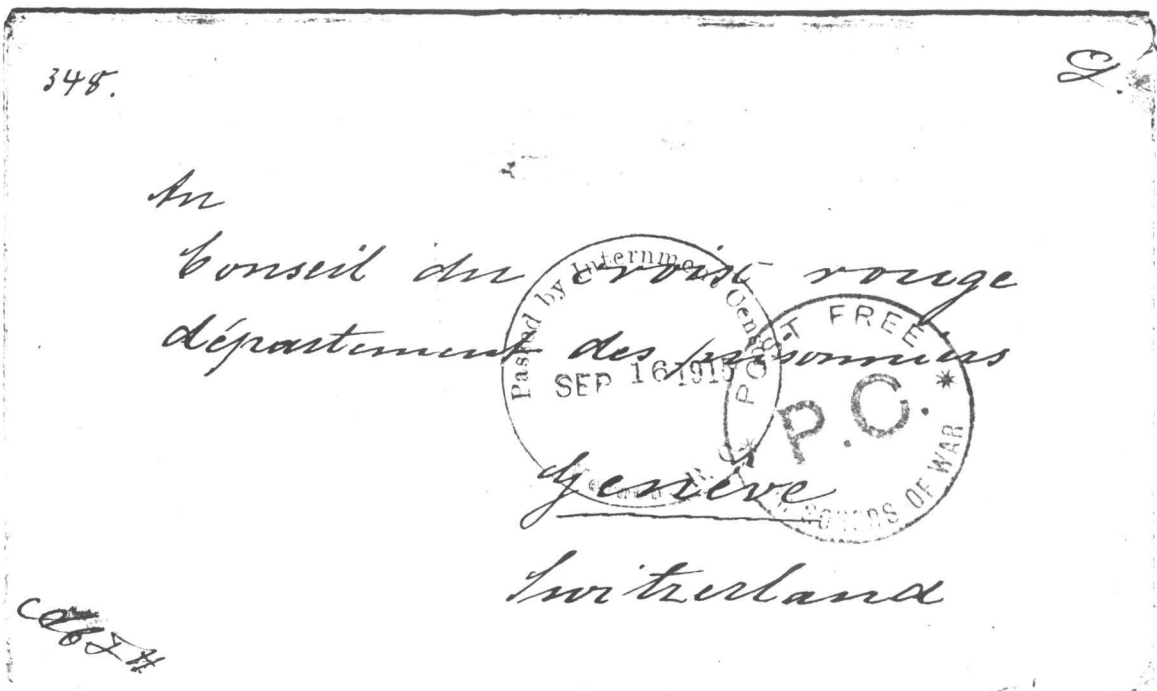 348.
An
Conseil du croix rouge
département des prisonniers
Genève
Switzerland
Passed by Internment Censor
SEP 16 1915
POST FREE
P.C.
PRISONERS OF WAR